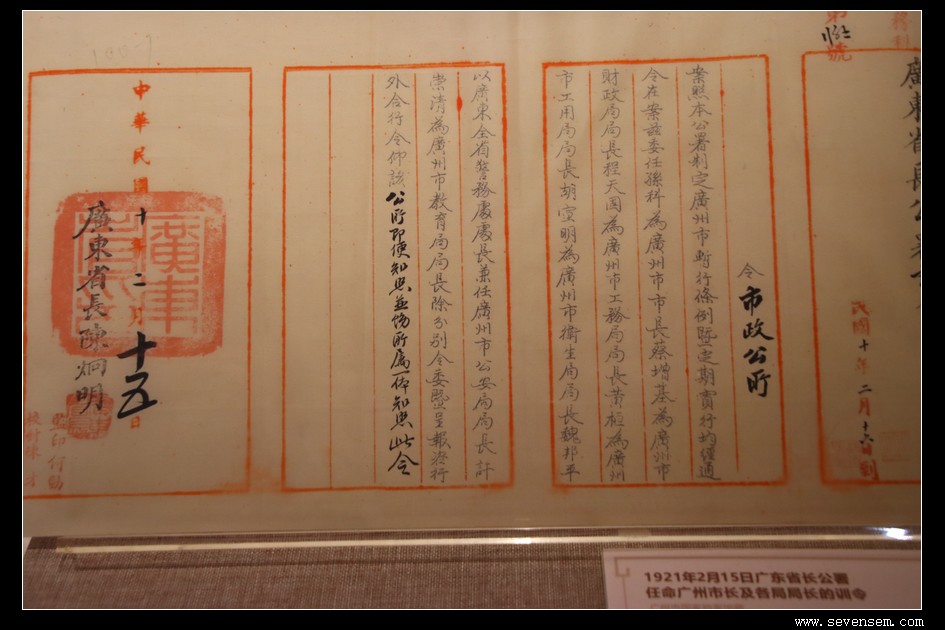 號
廣東省長公署
民國十年二月十六日到
令市政公所
案照本公署制定廣州市暫行條例暨定期實行均經通
令在案茲委任孫科為廣州市市長蔡增基為廣州市
財政局局長程天固為廣州市工務局局長黃桓為廣州
市工用局局長胡宣明為廣州市衛生局局長魏邦平
以廣東全省警務處處長兼任廣州市公安局局長許
崇清為廣州市教育局局長除分別令委暨呈報咨行
外合行令仰該公所即便知照並飭所屬一体知照此令
中華民國十年二月十五日
廣東省長陳炯明
監印何勤
校對陳
1921年2月15日广东省长公署
任命广州市长及各局局长的训令
www.sevensem.com